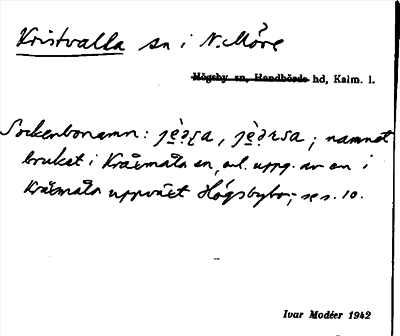 Kristvalla sn i N. Möre
Högsby sn, Handbörds hd, Kalm. l.
Sockenbonamn: jè̱ə̱ʂa, jè̱ə̱rsa; namnet
bruket i Kråksmåla sn, enl. uppg. av en i
Kråksmåla uppväxt Högsbybo; se s. 10.
Ivar Modéer 1942